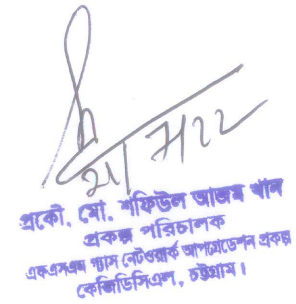 প্রকৌ. মো. শফিউল আজম খান
প্রকল্প পরিচালক
গ্যাস নেটওয়ার্ক আপগ্রেডেশন প্রকল্প
কেজিডিসিএল, চট্টগ্রাম।